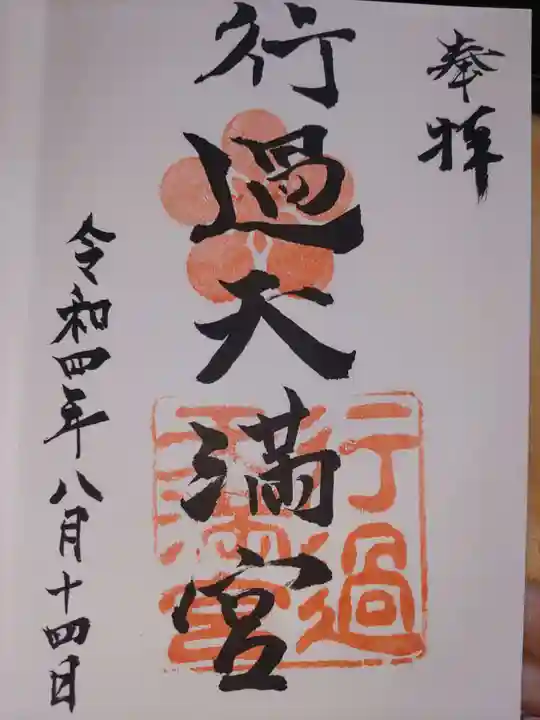 奉拝
行過天満宮
行過
天満宮
令和四年八月十四日